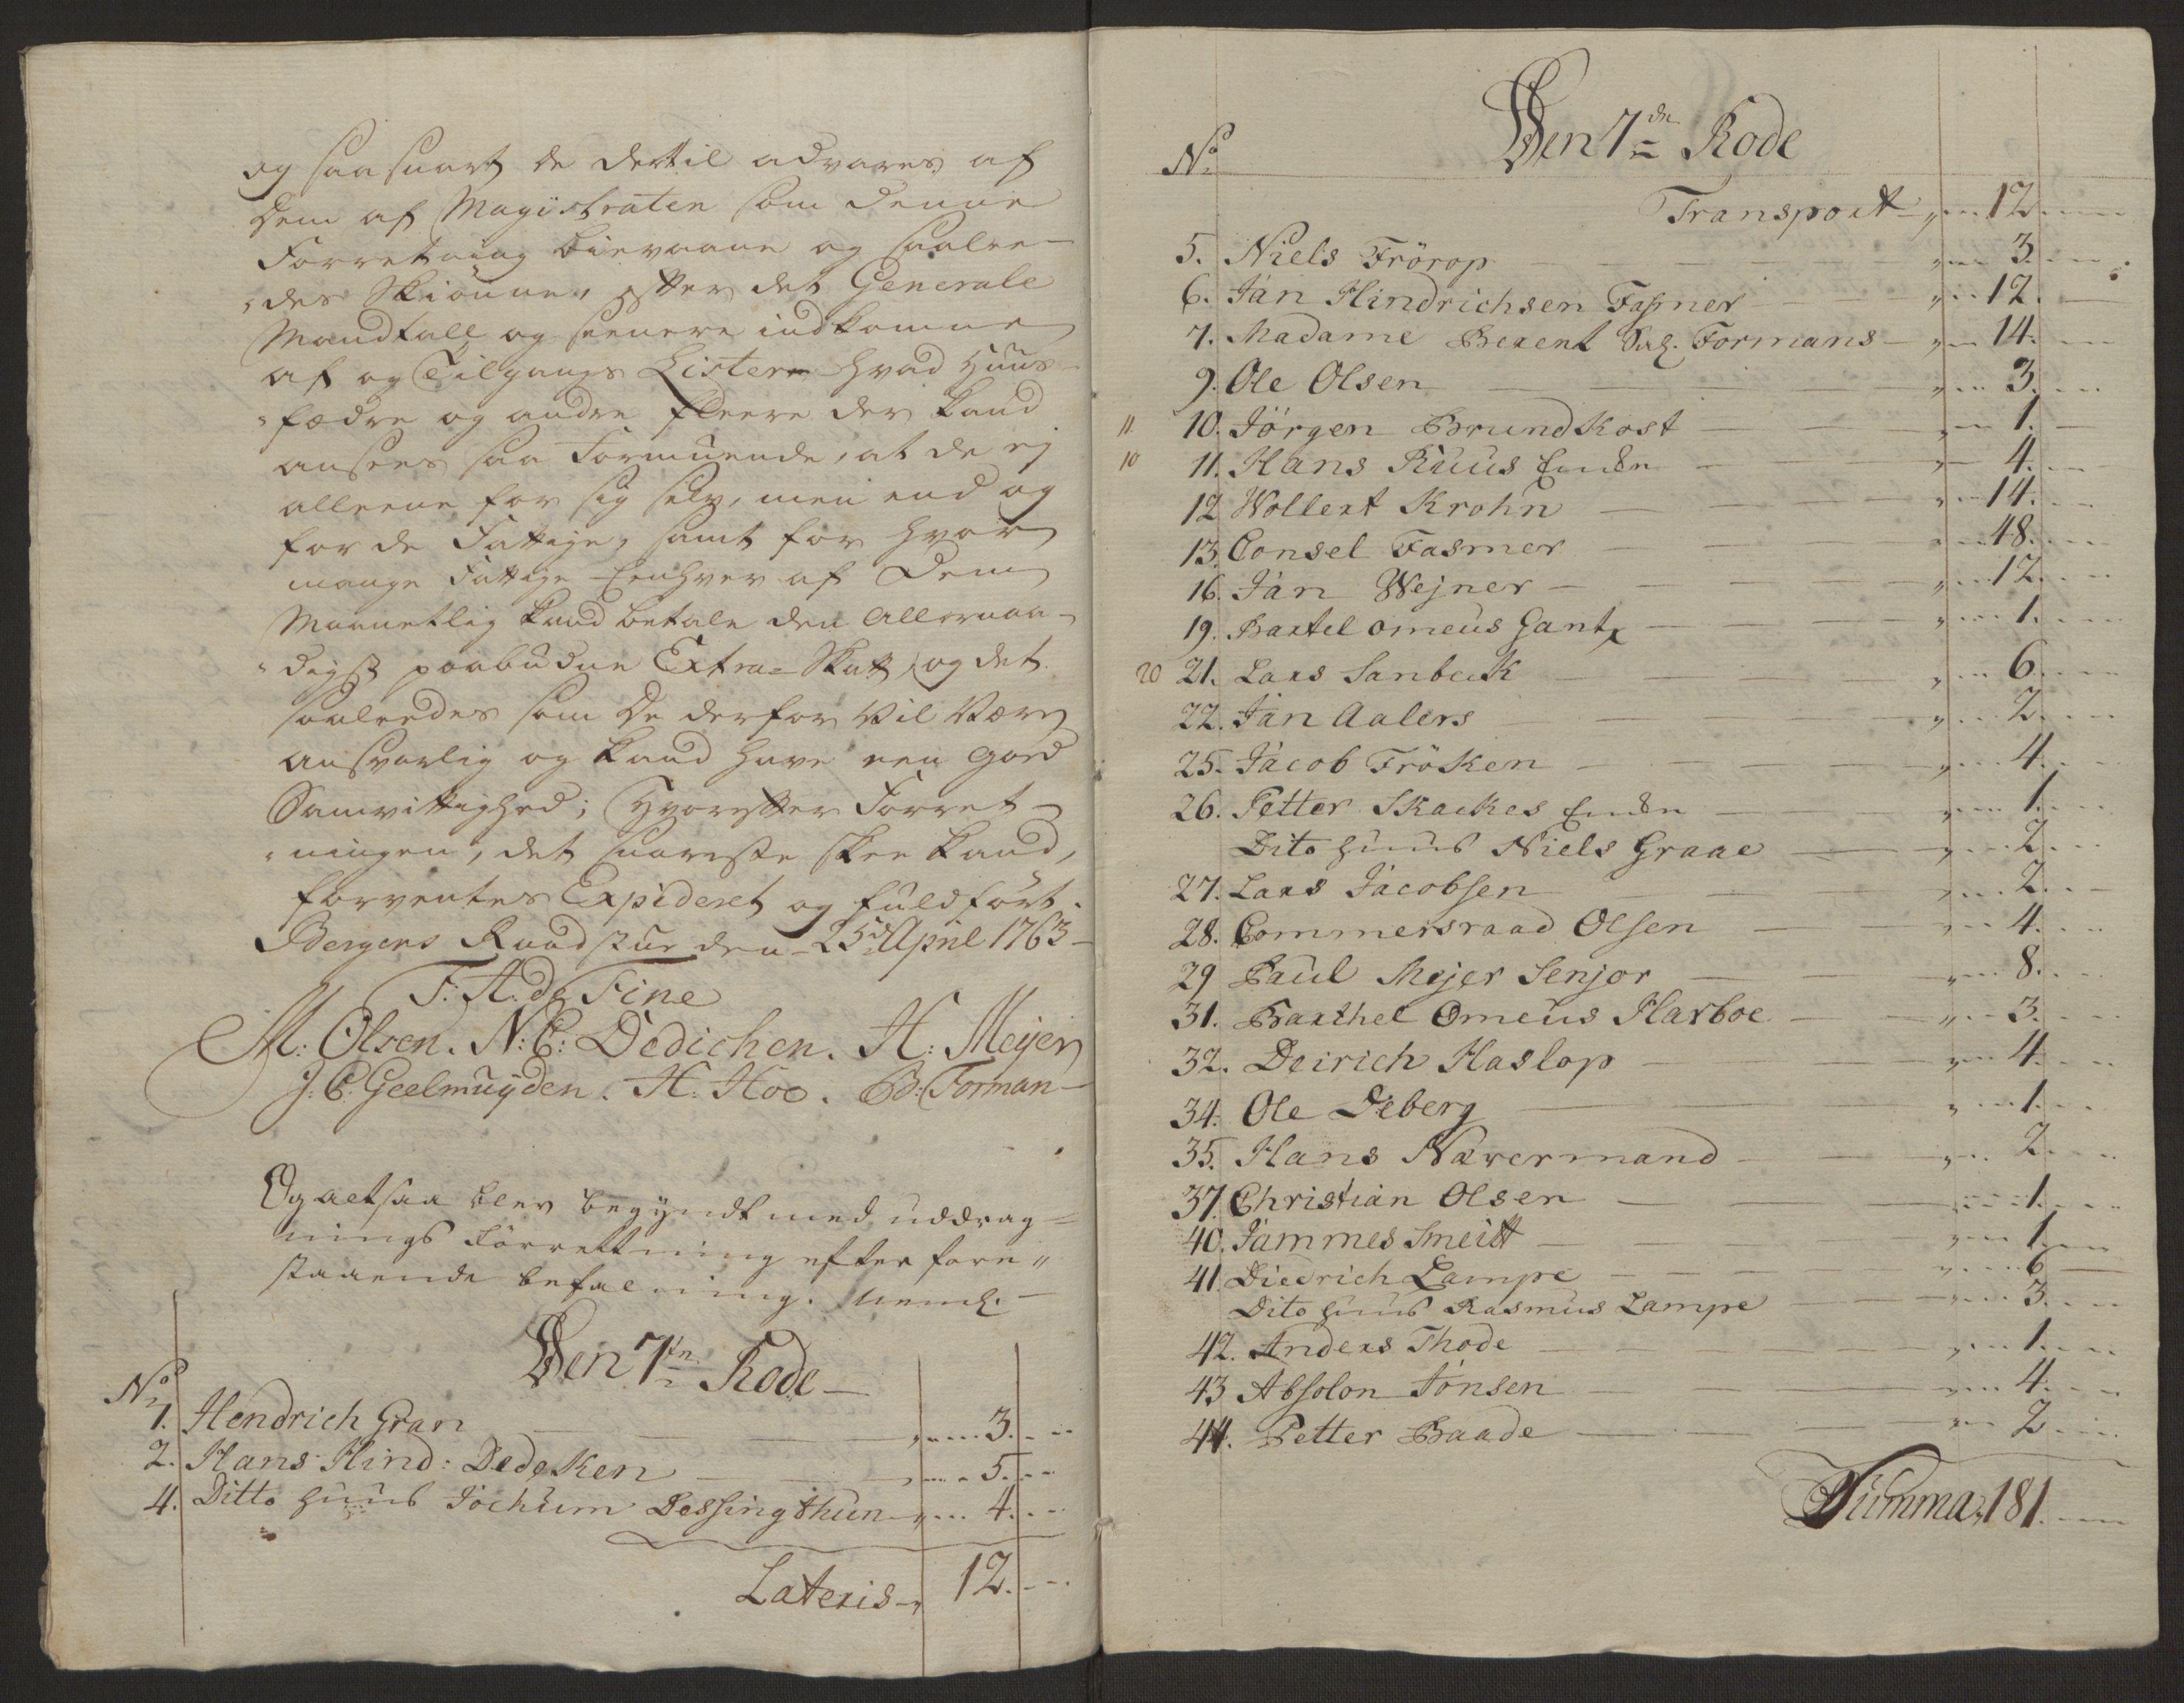 og saasnart de dertil advares af
Dem af Magistraten som denne
Forretning bievaane og saalee-
„des Skiønne, efter det Generale
Mandtall og seenere indkomne
af og Tilgangs Lister hvad Huus-
„fædre og andre fleere der kand
ansees saa Formuende, at de ej
alleene for sig selv, men end og
for de Fattige, samt for hvor
mange Fattige Eenhver af Dem
Maanetlig kand betale den Allernaa-
„digst paabudne Extra-Skatt, og det
saaleedes som De derfor Vil Være
ansvarlig og kand have een goed
Samvittighed; Hvorefter Forret-
„ningen, det snareste skee kand,
forventes Expideret og fuldført.
Bergens Raadstue den 25de April 1763
F: A: de Fine
M: Olsen. N: C: Dedichen. H: Meyer
J: C: Geelmuyden. H: Hoe. B: Forman
Og altsaa blev begyndt med uddrag=
nings Forrettning efter fore„
staaende befalning. Neml:
Den 7de Rode
No
1. Hendrich Gran 3.
2. Hans Hind: Dedeken 5.
4. Ditto huus Jochum Dessingthun 4.
Lateris 12.
Den 7de Rode
No
Transport 12
5. Niels Frörop 3.
6. Jan Hindrichsen Fasmer 12.
7. Madame Berent Sal. Formans 14.
9. Ole Olsen 3.
11 10. Jörgen Brundkost 1.
10 11. Hans Ruus Enke 4.
12 Wollert Krohn 14.
13. Consel Fasmer 48.
16. Jan Wejner 12.
19. Bartel omeus Gantz 1.
20 21. Lars Sanbeck 6.
22. Jan Aalers 2.
25. Jacob Fröken 4.
26. Petter Skackes Enke 1.
Dito huus Niels Graae 2.
27. Lars Jacobsen 2.
28. Commersraad Olsen 4.
29 Paul Mejer Senjor 8.
31. Barthel Omeus Harboe 3.
32. Deirich Haslop 4.
34. Ole Deberg 1.
35. Hans Næver mand 2.
37. Christian Olsen 1.
40. Jammes Smeitt 1.
41. Diedrich Lampe 6
Dito huus Rasmus Lampe 3.
42. Anders Thode 1.
43 Absolon Jonsen 4.
44. Petter Baade 2
Summa 181.